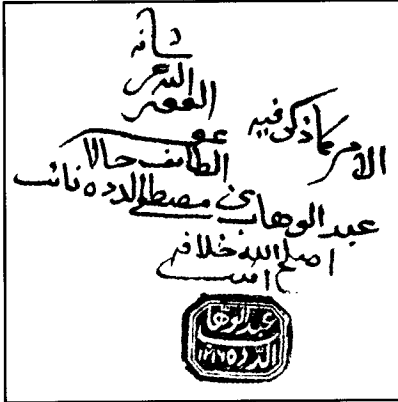 الامر كما ذكر فيه
الفقير
الله عز
شانه
عبد الوهاب بن مصطفى الدده نائب
الطائف حالا
عفى
اصلح الله خلافه
امين
عبد الوهاب
الدده ١٢١٦٥